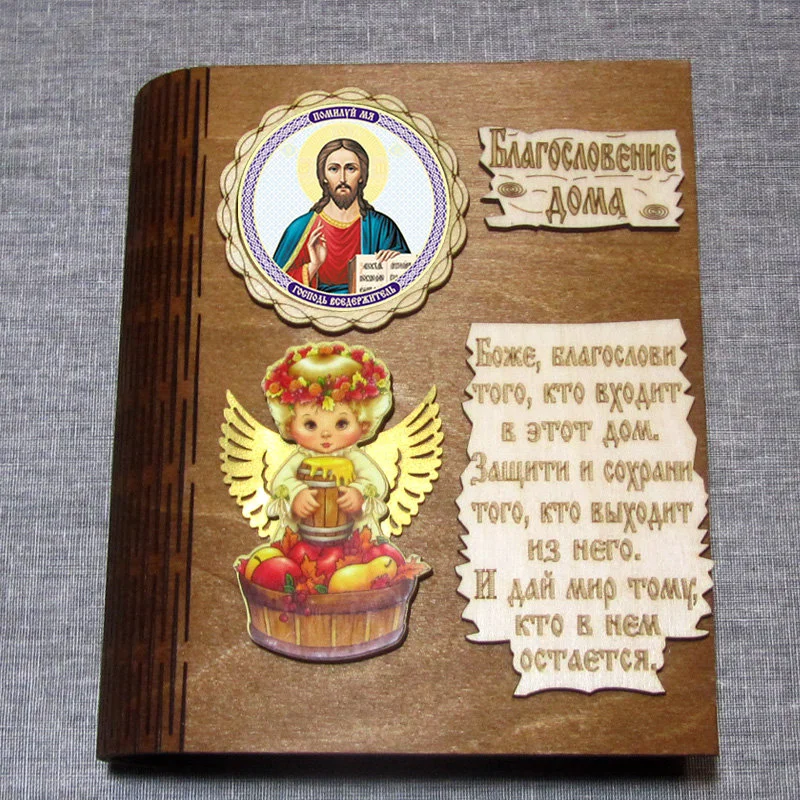 ПОМИЛУЙ МЯ
ГОСПОДЬ ВСЕДЕРЖИТЕЛЬ
Благословение
дома
Боже, благослови
того, кто входит
в этот дом.
Защити и сохрани
того, кто выходит
из него.
И дай мир тому,
кто в нем
остается.